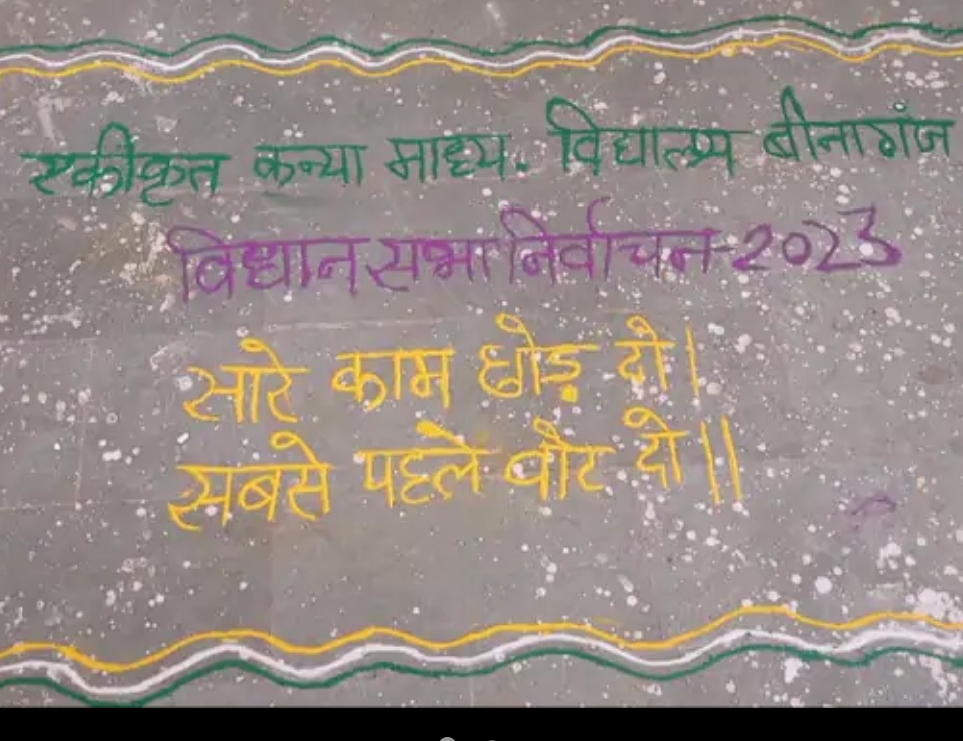 एकीकृत कन्या माध्य. विद्यालय बीनागंज
विधानसभा निर्वाचन-2023
सारे काम छोड़ दो।
सबसे पहले वोट दो॥